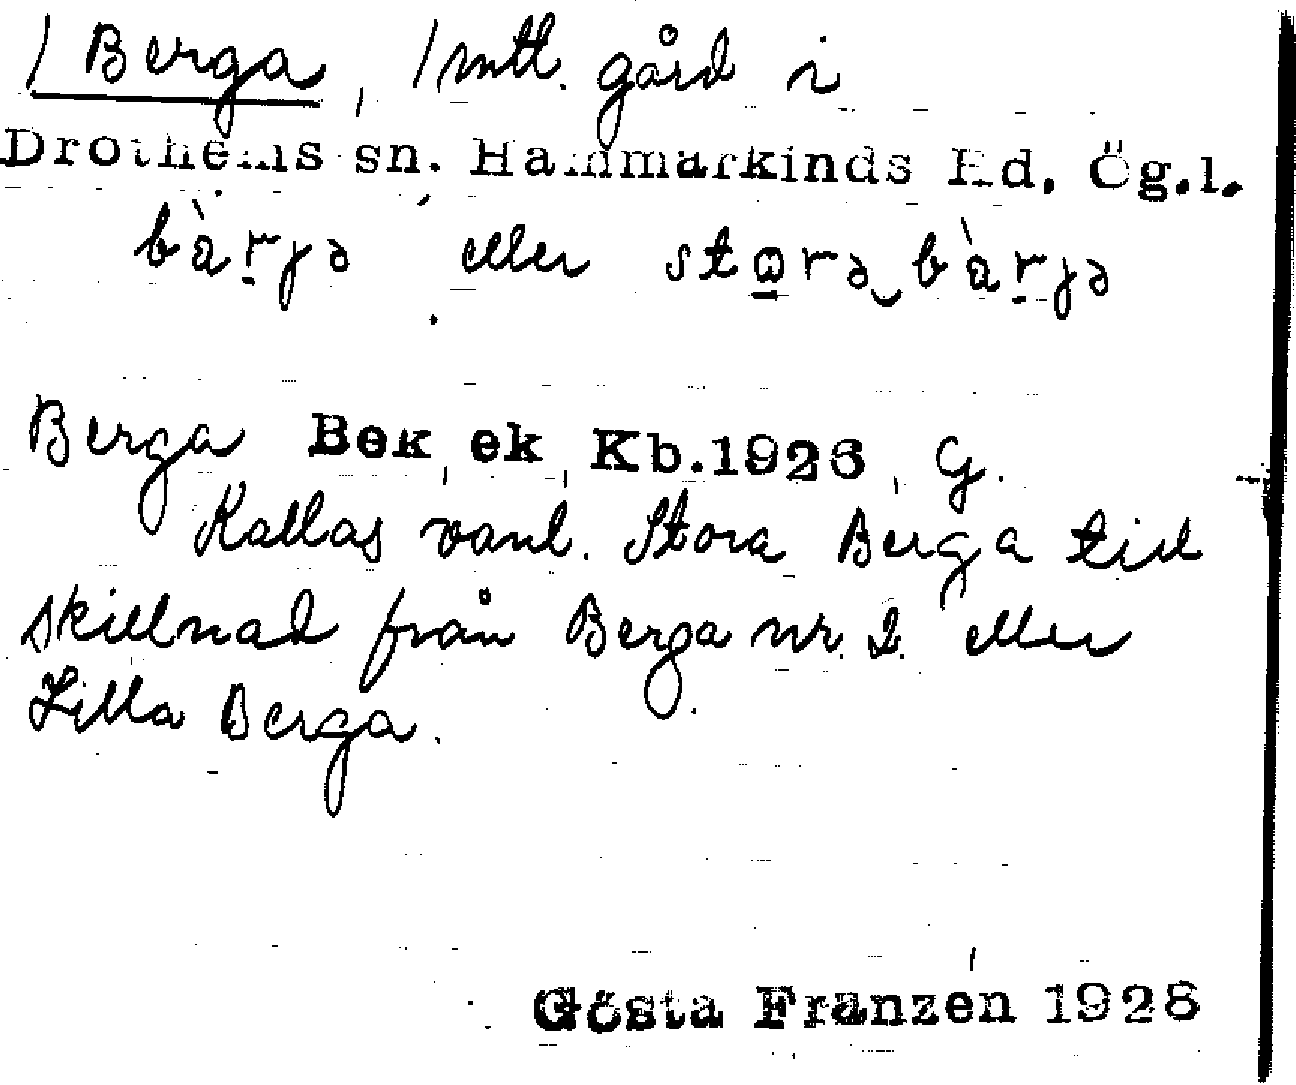 1 Berga, 1 mtl. gård i
Drothems sn. Hammarkinds Hd. Ög.l.
bàr̠jə eller sto̠rə‿bàr̠jə
Berga Bek, ek, Kb.1926, G.
Kallas vanl. Stora Berga till
skillnad från Berga nr. 2. eller
Lilla Berga.
Gösta Franzén 1928